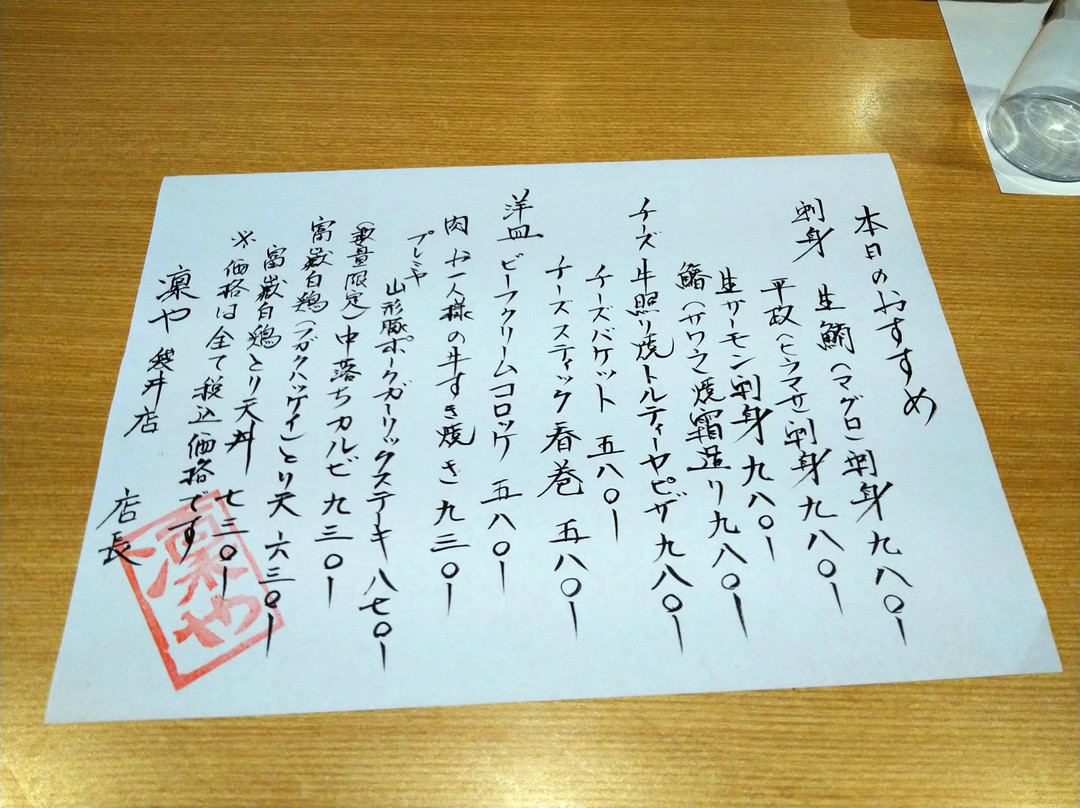 本日のおすすめ
刺身 生鮪(マグロ)刺身 九八〇ー
平政(ヒラマサ)刺身 九八〇ー
生サーモン刺身 九八〇ー
鰆(サワラ)焼霜造り 九八〇ー
チーズ 牛照り焼トルティーヤピザ 九八〇ー
チーズバケット 五八〇ー
チーズスティック春巻 五八〇ー
洋皿 ビーフクリームコロッケ 五八〇ー
肉 お一人様の牛すき焼き 九三〇ー
プレミヤ
山形豚ポークガーリックステーキ 八七〇ー
(数量限定)中落ちカルビ 九三〇ー
富嶽白鶏(フガクハッケイ)とり天 六三〇ー
富嶽白鶏とり天丼 七三〇ー
※価格は全て税込価格です
凜や 袋井店 店長
凜や